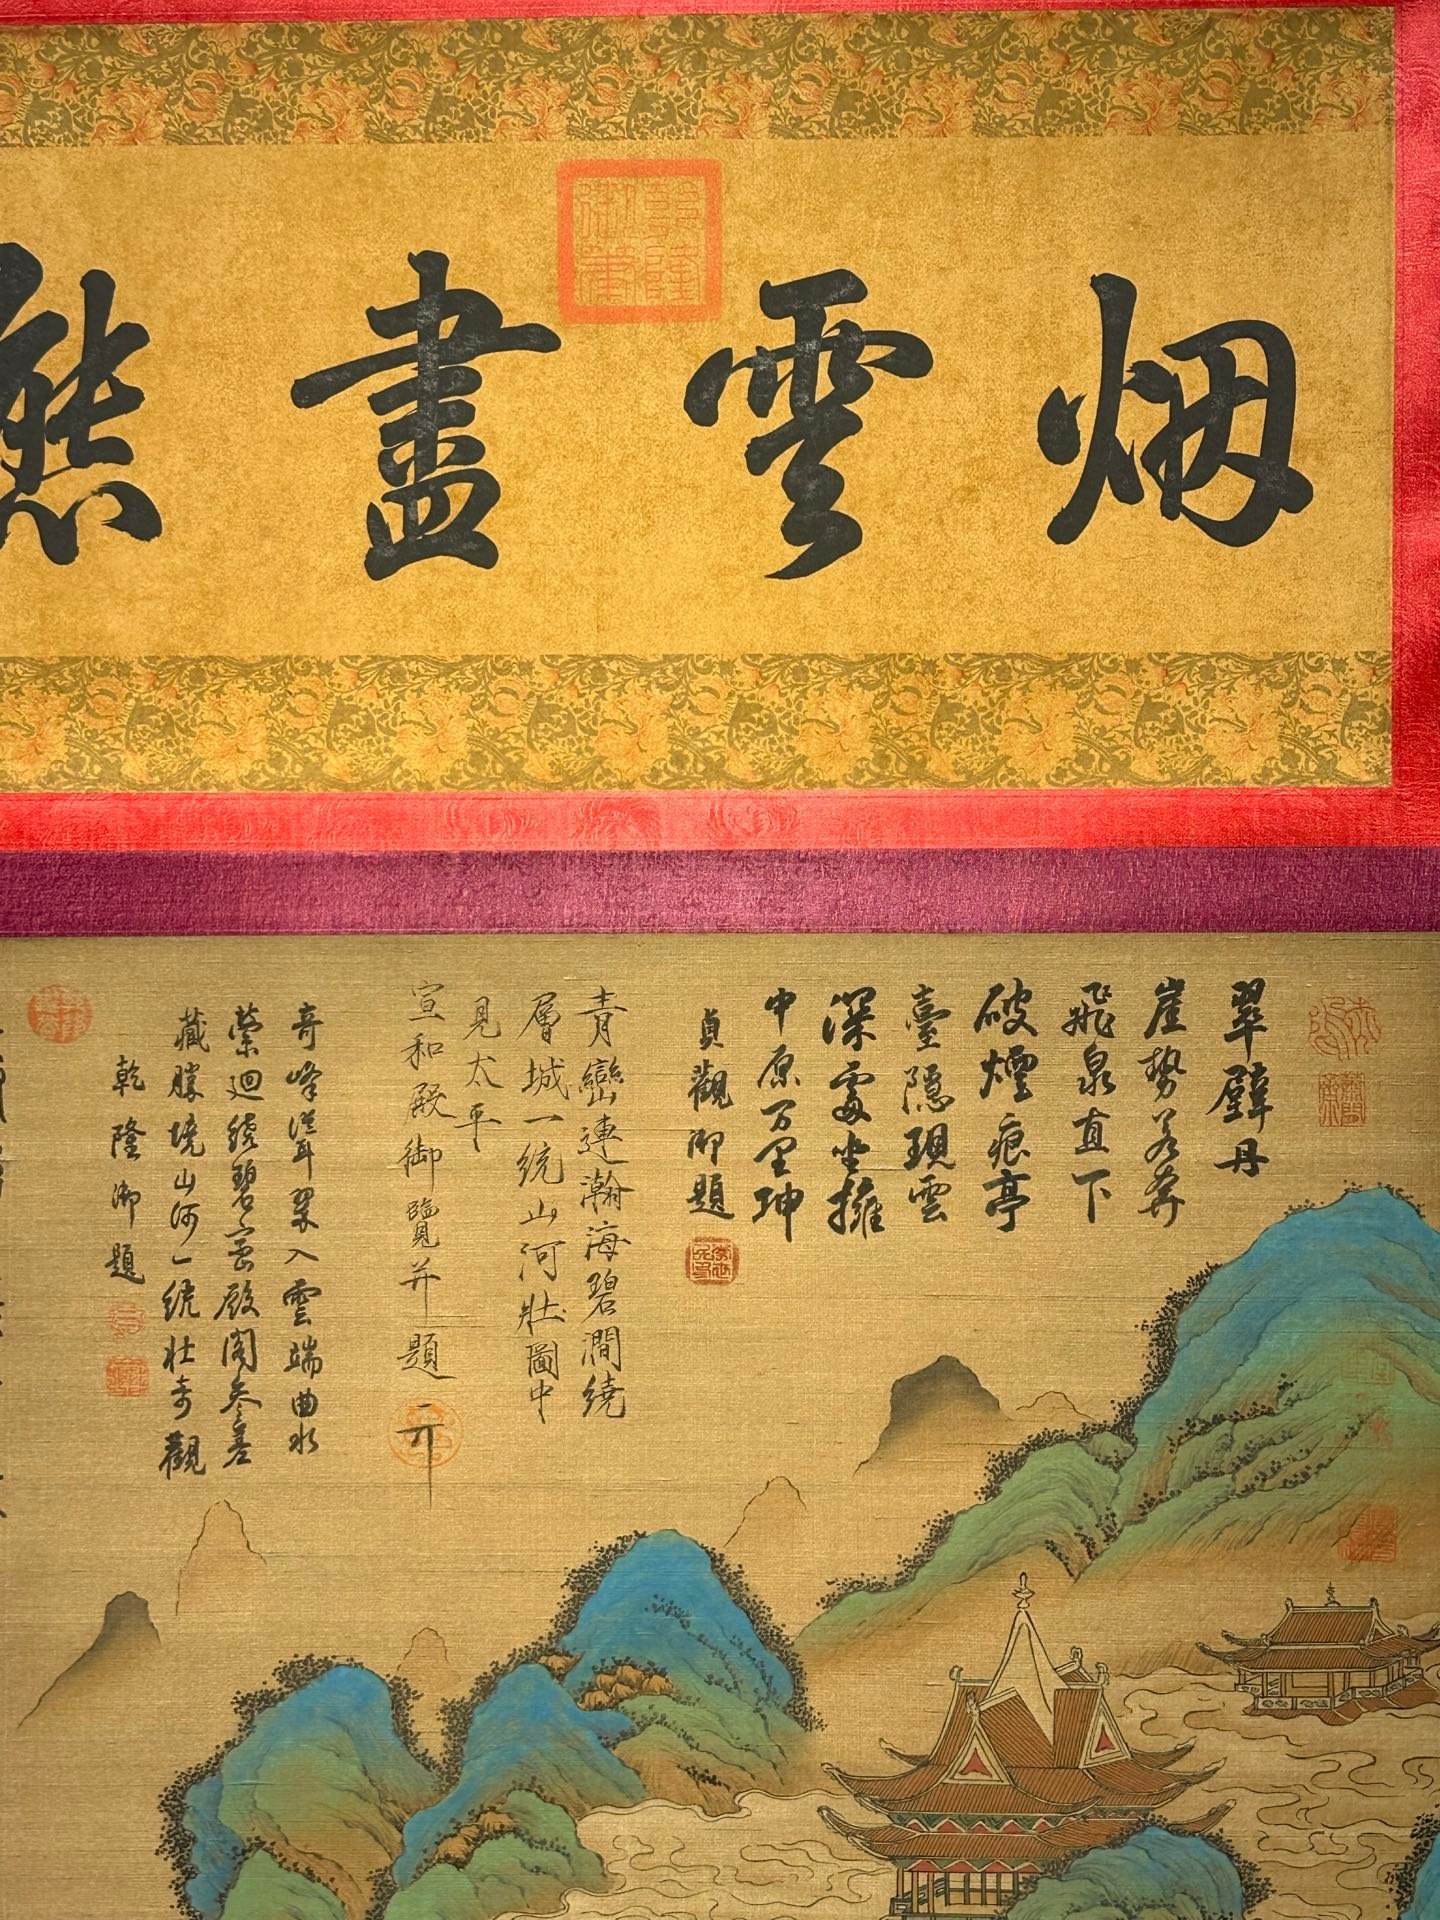 烟雲盡態
乾隆御筆
翠壁丹
崖勢若奔
飛泉直下
破煙痕亭
臺隱現雲
深處坐擁
中原万里珅
貞觀御題
青巒連瀚海碧澗繞
層城一統山河壯圖中
見太平
宣和殿御覽并題
奇峰茫耳翠入雲端曲水
縈迴繞碧宮殿閣參差
藏勝境山河一統壯奇觀
乾隆御題